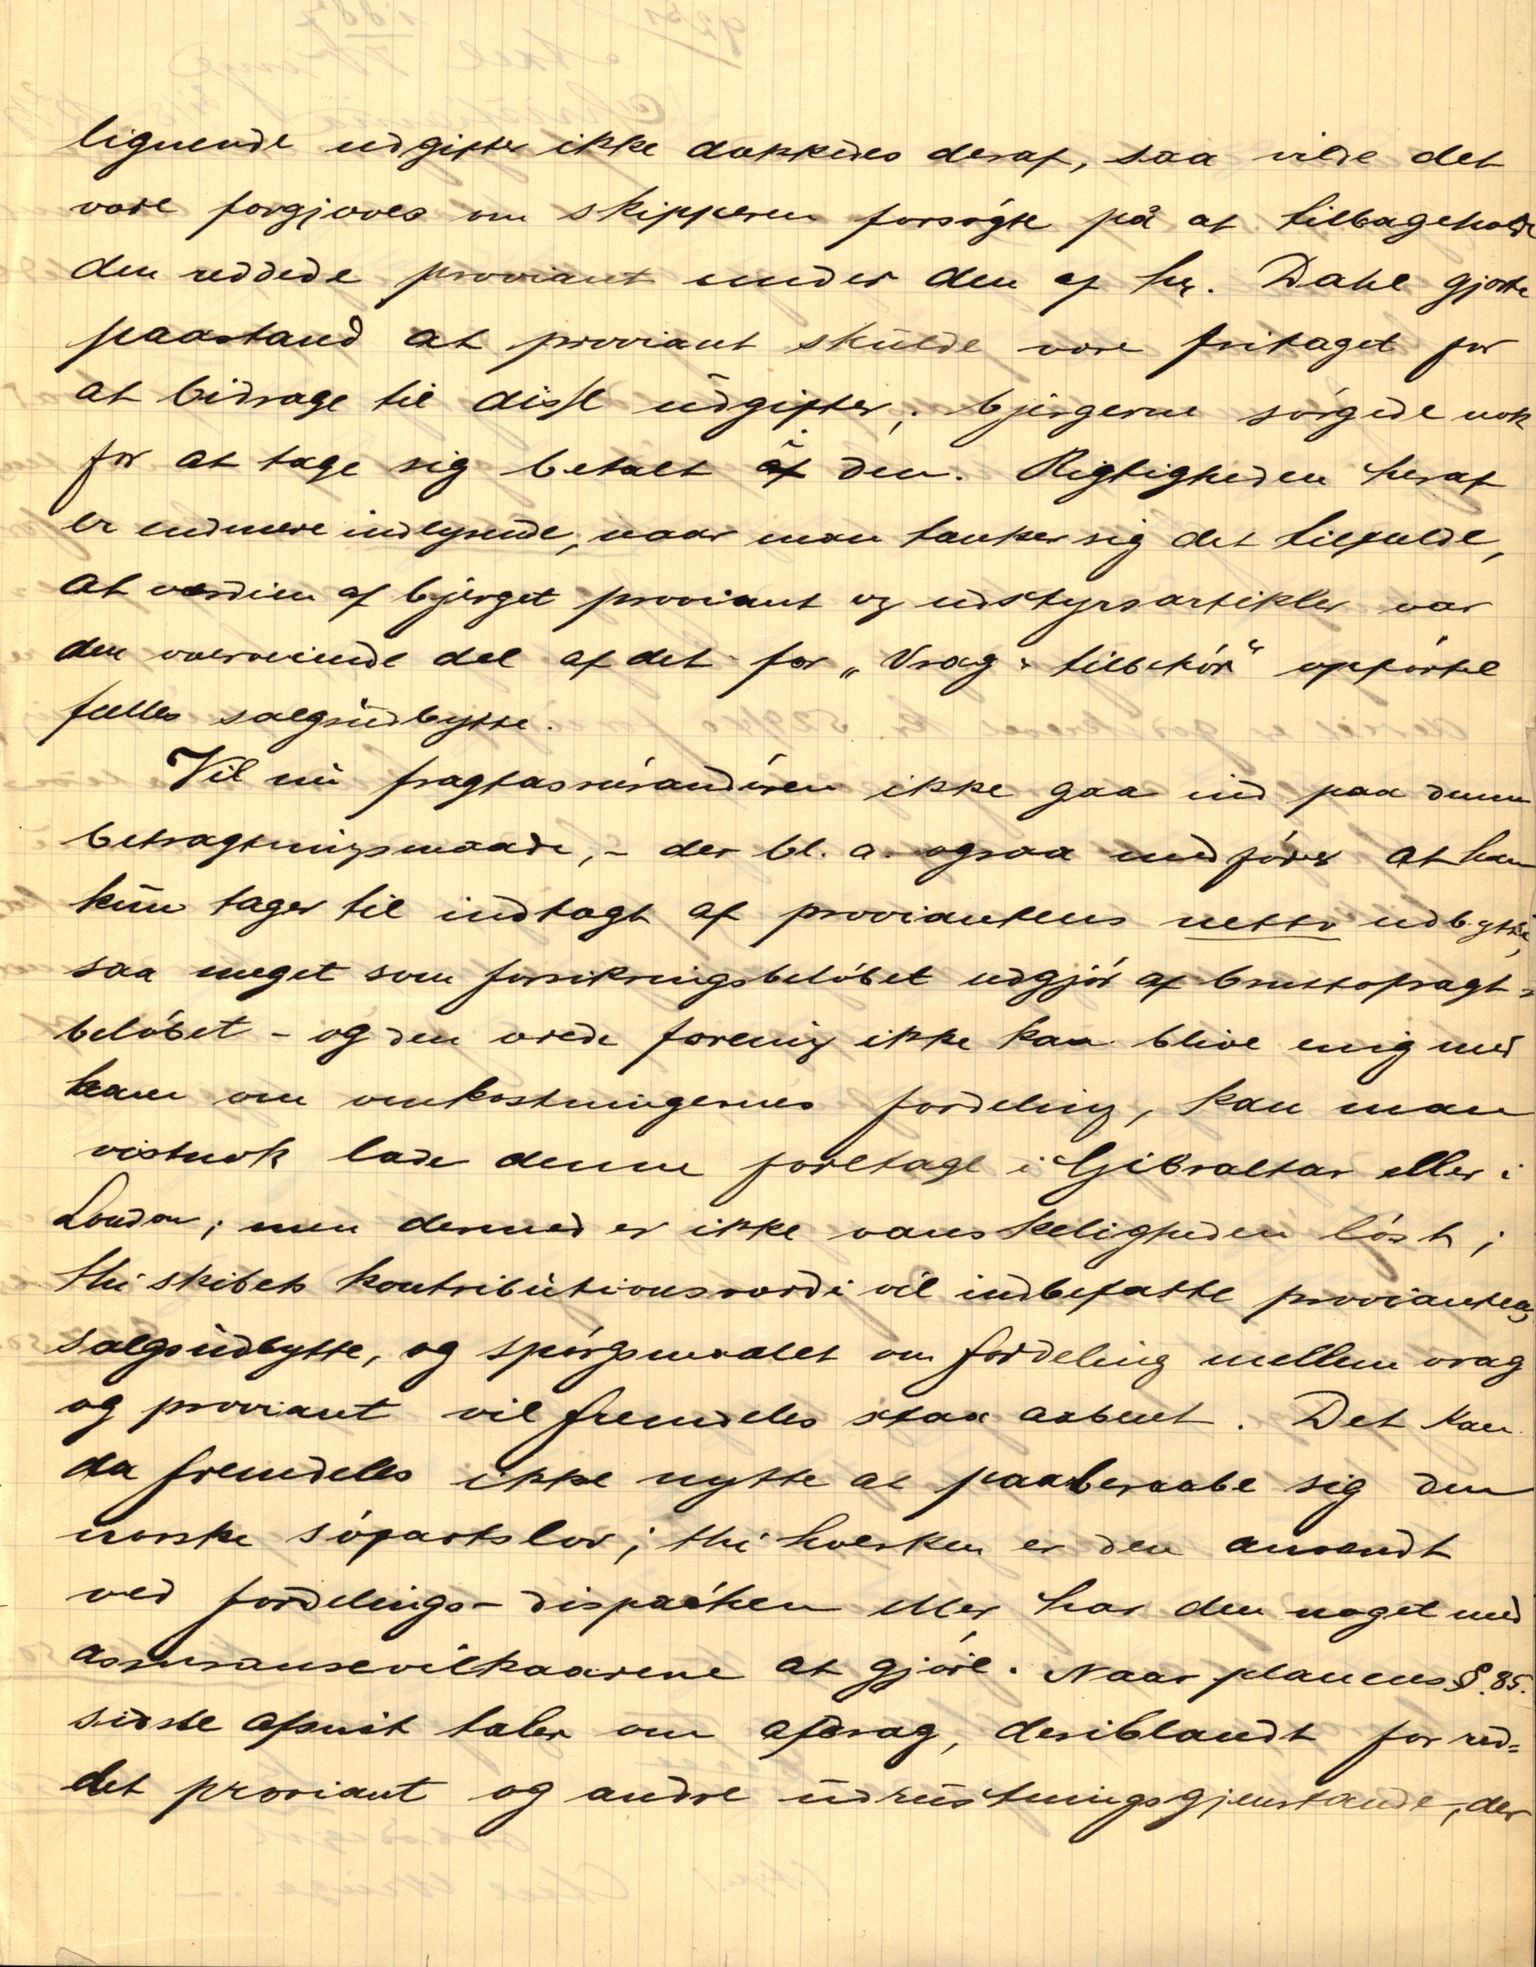 lignende udgifter ikke dækkedes deraf, saa vilde det
være forgjæves om skipperen forsögte på at tilbageholde
den reddede proviant under den af hr. Dahl gjorte
paastand at proviant skulde være fritaget for
at bidrage til disse udgifter; bjergerne sörgede nok
for at tage sig betalt af den. Rigtigheden heraf
er endmere indlysende, naar man tænker sig det tilfælde,
at værdien af bjerget proviant og udstyrsartikler var
den overveiende del af det for „Vrag & tilbehör“ opförte
fælles salgsudbytte.
Vil nu fragtassurandören ikke gaa ind paa denne
betragtningsmaade, – der bl. a. ogsaa medförer at han
kun tager til indtægt af proviantens netto udbytte,
saa meget som forsikringsbelöbet udgjör af bruttofragt-
belöbet – og den ærede forening ikke kan blive enig med
ham om omkostningernes fordeling, kan man
vistnok lade denne foretage i Gibraltar eller i
London; men dermed er ikke vanskeligheden löst;
thi skibets kontributionsværdi vil indbefatte proviantens
salgsudbytte, og spörgsmaalet om fordeling mellem vrag
og proviant vil fremdeles staa aabent. Det kan
da fremdeles ikke nytte at paaberaabe sig den
norske söfartslov; thi hverken er den anvendt
ved fordelings-dispachen eller har den noget med
assuransevilkaarene at gjöre. Naar planens §. 85.
sidste afsnit taler om afdrag, deriblandt for red=
det proviant og andre udrustningsgjenstande, der